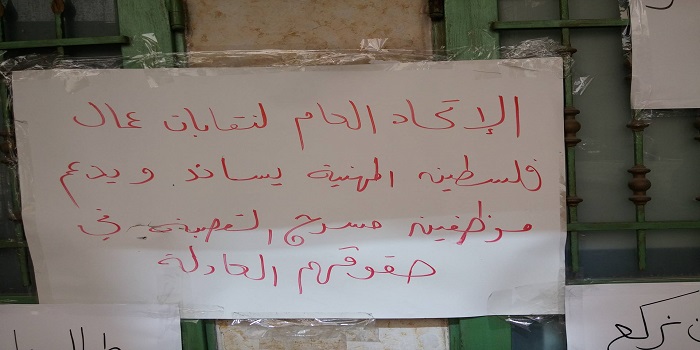 الإتحاد العام لنقابات عمال
فلسطين المهنية يساند ويدعم
موظفين مسرح القصبة في
حقوقهم العادلة
نركع